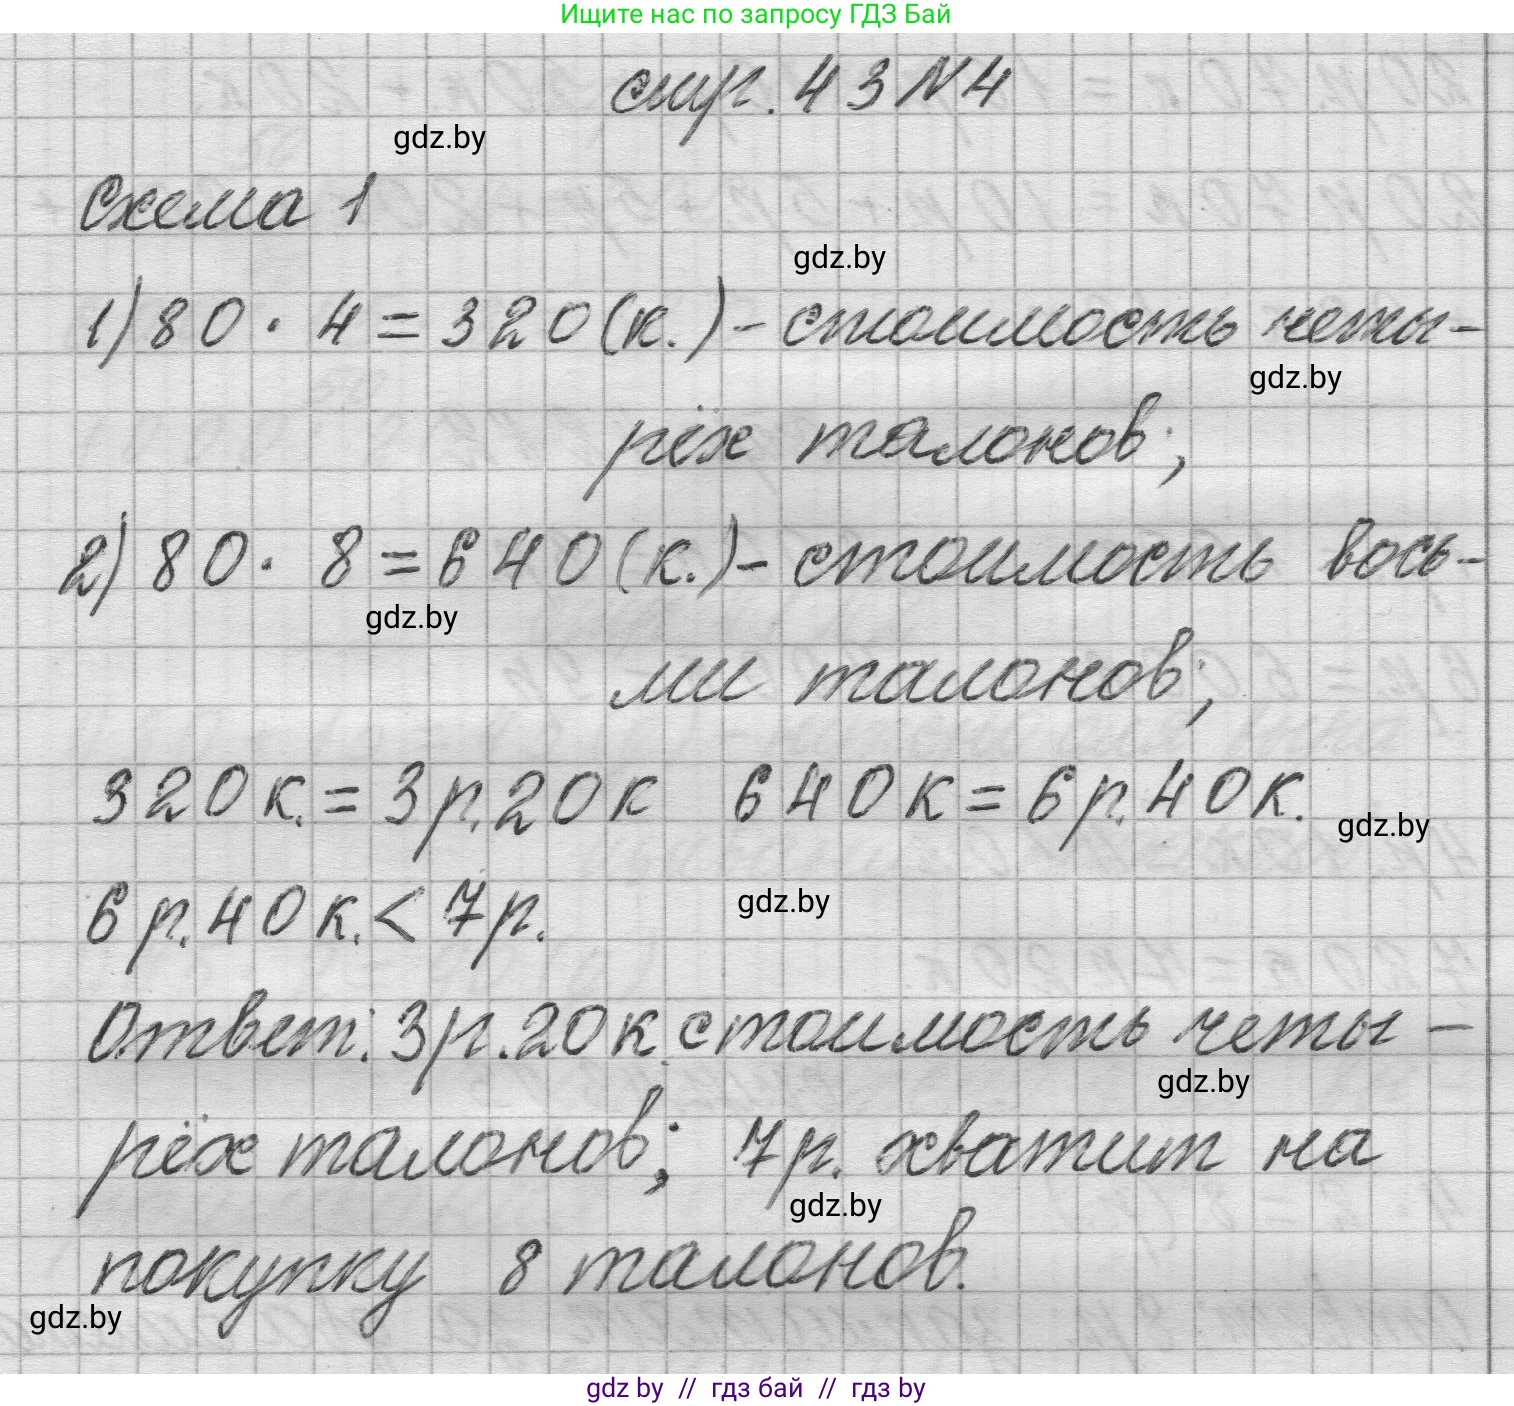 Ищите нас по запросу ГДЗ Бай
стр. 43 N4
gdz.by
Схема 1
gdz.by
1) 80 · 4 = 320 (к.) - стоимость четы-
gdz.by
рёх талонов;
2) 80 · 8 = 640 (к.) - стоимость вось-
gdz.by
ми талонов;
320 к. = 3 р. 20 к 640 к = 6 р. 40 к.
gdz.by
6 р. 40 к. < 7 р.
gdz.by
Ответ: 3 р. 20 к. стоимость четы-
gdz.by
рёх талонов; 7 р. хватит на
gdz.by
покупку 8 талонов.
gdz.by
gdz by // гдз бай // гдз by